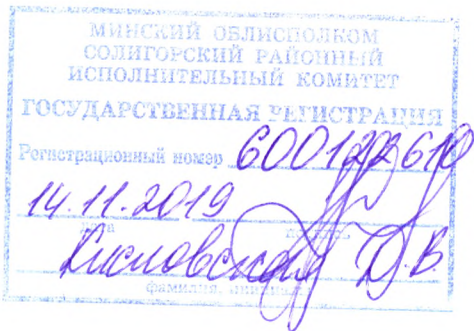 МИНСКИЙ ОБЛИСПОЛКОМ
СОЛИГОРСКИЙ РАЙОННЫЙ
ИСПОЛНИТЕЛЬНЫЙ КОМИТЕТ
ГОСУДАРСТВЕННАЯ РЕГИСТРАЦИЯ
Регистрационный номер 600122610
14.11.2019
дата подпись
Д.В.
фамилия, инициалы